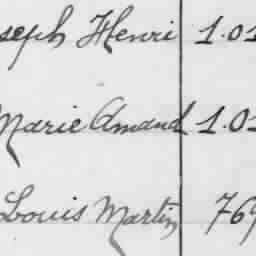 seph Henri 1.01
Marie Amand 1.01
Louis Martin 769